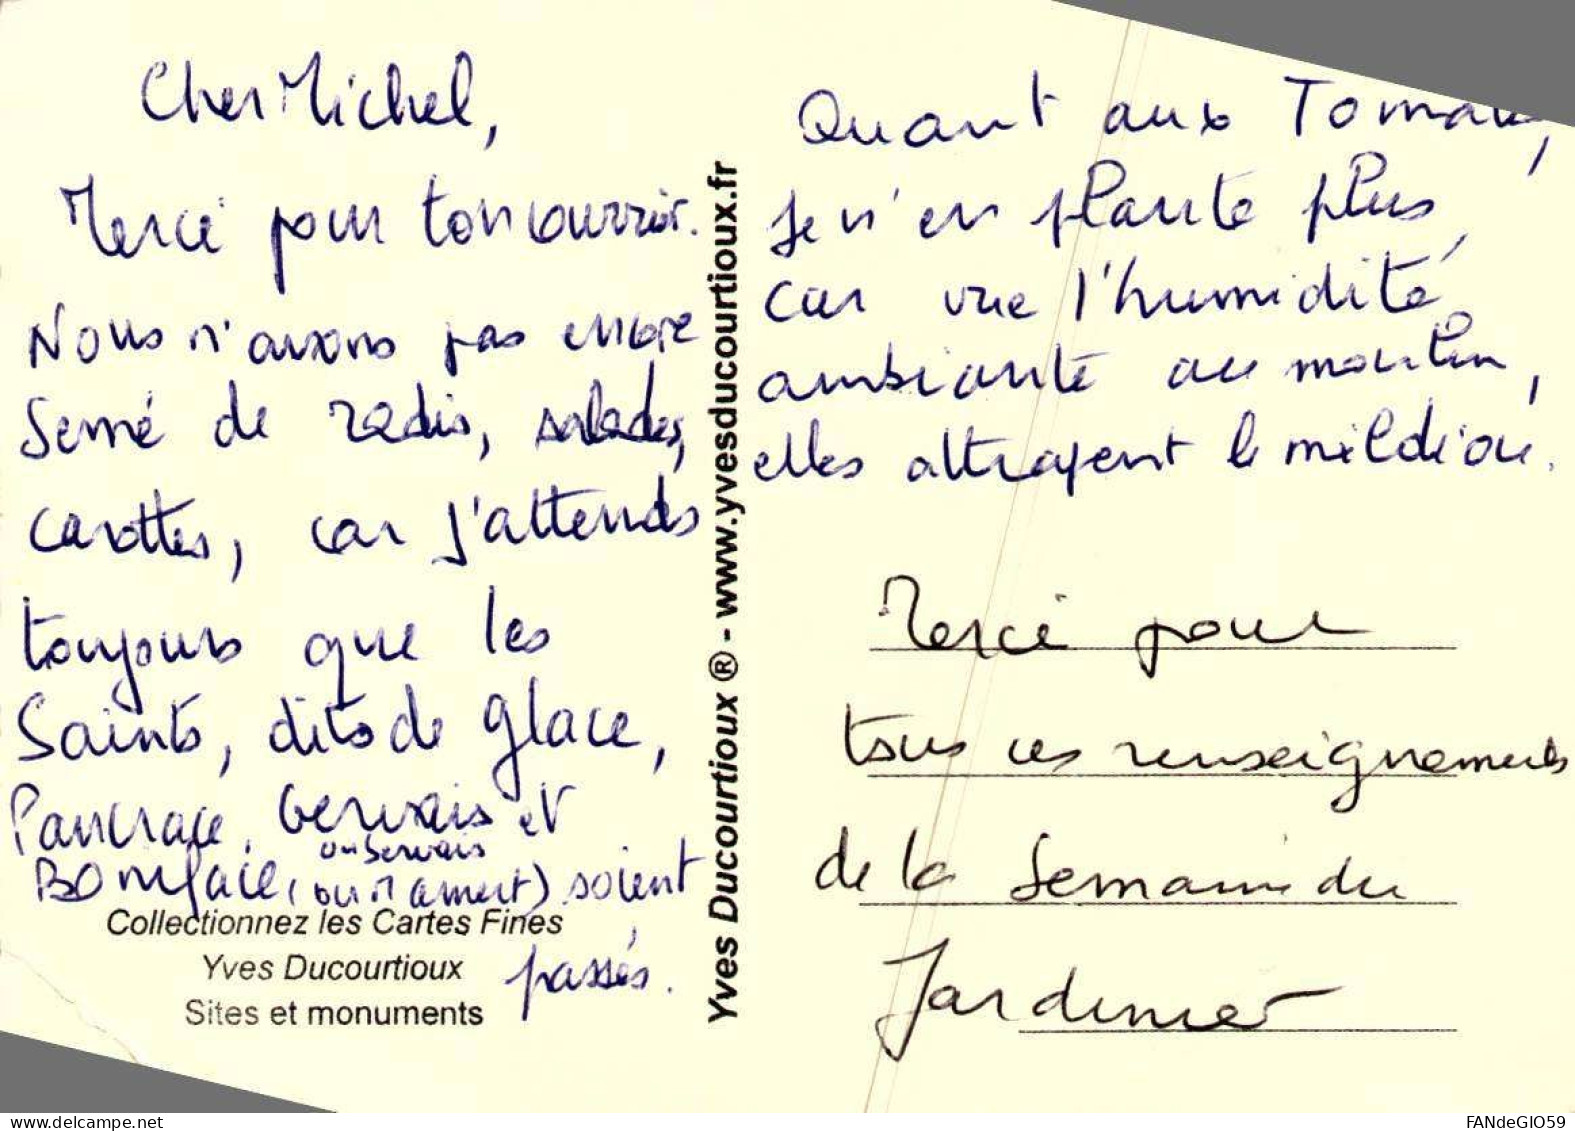 Cher Michel,
Merci pour ton courrier.
Nous n'avons pas encore
semé de radis, salades,
carottes, car j'attends
toujours que les
Saints, dits de glace,
Pancrace, Gervais et
ou Servais
Boniface, (ou Mamert) soient
passés.
Collectionnez les Cartes Fines
Yves Ducourtioux
Sites et monuments
Yves Ducourtioux ® - www.yvesducourtioux.fr
Quant aux Tomates,
je n'en plante plus,
car vue l'humidité
ambiante au moulin,
elles attrapent le mildiou.
Merci pour
tous ces renseignements
de la Semaine du
Jardinier
FANdeGIO59